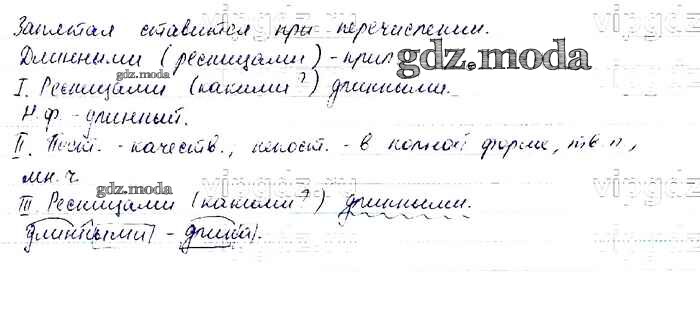 Запятая ставится при перечислении.
Длинными (ресницами) - прил
gdz.moda
gdz.moda
I. Ресницами (какими?) длинными.
Н.ф. - длинный.
II. Пост. - качеств., непост. - в полной форме, тв. п.,
мн. ч.
gdz.moda
gdz.moda
III. Ресницами (какими?) длинными.
длинными -